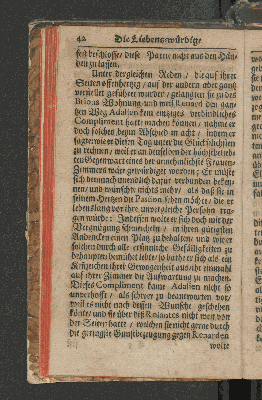 42 Die Liebenswürdige
fest beschlosse/ diese Partie nicht aus den Hän-
den zu lassen.
Unter dergleichen Reden / die auf ihrer
Seiten offenhertzig/ auf der andern aber gantz
verstellet geführet wurden/ gelangten sie zu des
Wohnung/ und weil Renard den gan-
tzen Weg Adalien kein einziges verbindliches
Compliment hatte machen können / nahm er
doch solches beym Abschied in acht / indem er
sagte/ wie er diesen Tag unter die Glückseligsten
zu rechnen / weil er an demselben der höchstbeliebte
ten Gegenwart eines der annehmlichste Frauen-
Zimmers wäre gewürdiget worden; Er müste
sich demnach unendlich darzu verbunden beken-
nen/ und wünschte nichts mehr/ als daß sie in
seinem Hertzen die Passion sehen möchte/ die er
lebenslang vor ihre unvergleiche Person
gen würde: Indessen wolte er sich doch mit der
Vergnügung schmeicheln / in ihren gütigsten
Andencken einen Platz zu behalten/ und wie er
solchen durch alle ersinnliche Gefälligkeiten zu
behaupten bemühet lebte/ so bäthe er sich als ein
Kennzeichen ihrer Gewogenheit aus/ ihr einmahl
auf ihrer Zimmer die Aufwartung zu machen.
Dieses Compliment kame Adalien nicht so
unverhofft / als schwer zu beantworten vor/
weil es nicht nach dessen Wunsche geschehen
könte/ und sie über diß Rosantes nicht weit von
der Seiten hatte / welchen sie nicht gerne durch
die geringste Gunstbezeugung gegen Renarden
wolte